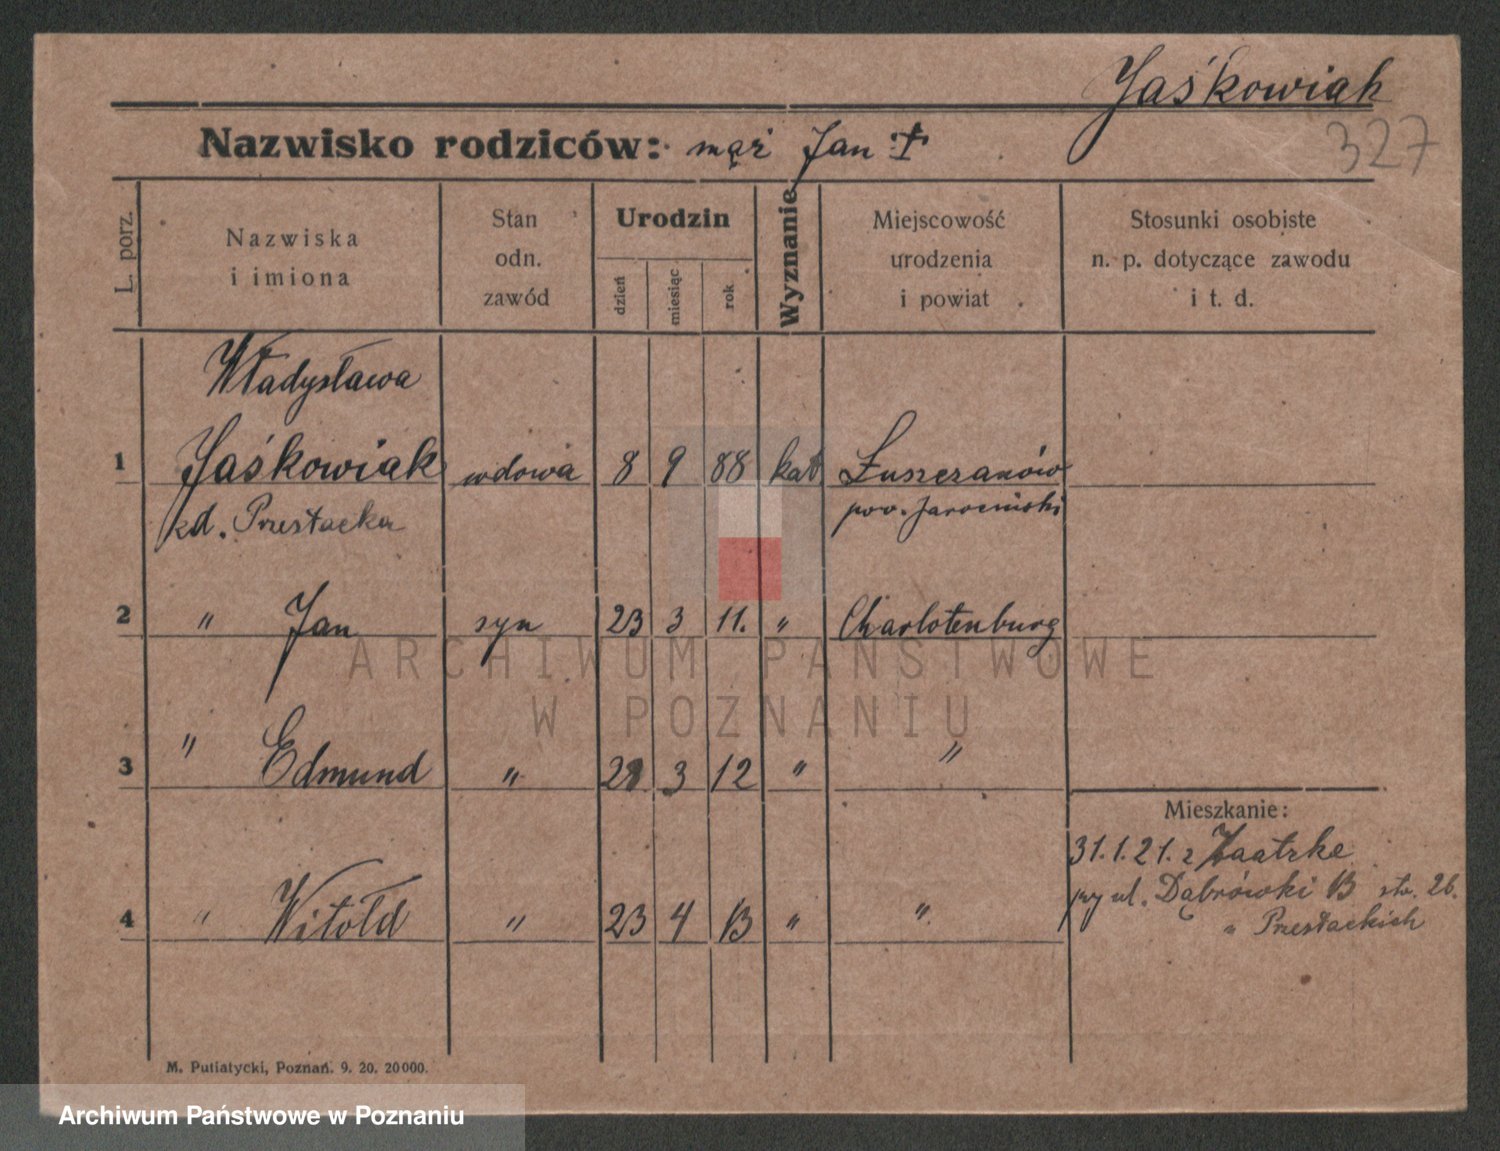 Jaśkowiak
327
Nazwisko rodziców: mąż Jan †
L. porz.
Nazwiska
i imiona
Stan
odn.
zawód
Urodzin
dzień
miesiąc
rok
Wyznanie
Miejscowość
urodzenia
i powiat
Stosunki osobiste
n. p. dotyczące zawodu
i t. d.
Władysława
1 Jaśkowiak wdowa 8 9 88 kat Łuszczanów
zd. Przestacka pow. Jarociński
2 " Jan syn 23 3 11. " Charlotenburg
3 " Edmund " 28 3 12 " "
Mieszkanie:
31.1.21. z
przy ul. Dąbrówki 13 stw. 26.
4 " Witołd " 23 4 13 " "
" Przestackich
M. Putiatycki, Poznań. 9. 20. 20000.
ARCHIWUM PAŃSTWOWE
W POZNANIU
Archiwum Państwowe w Poznaniu